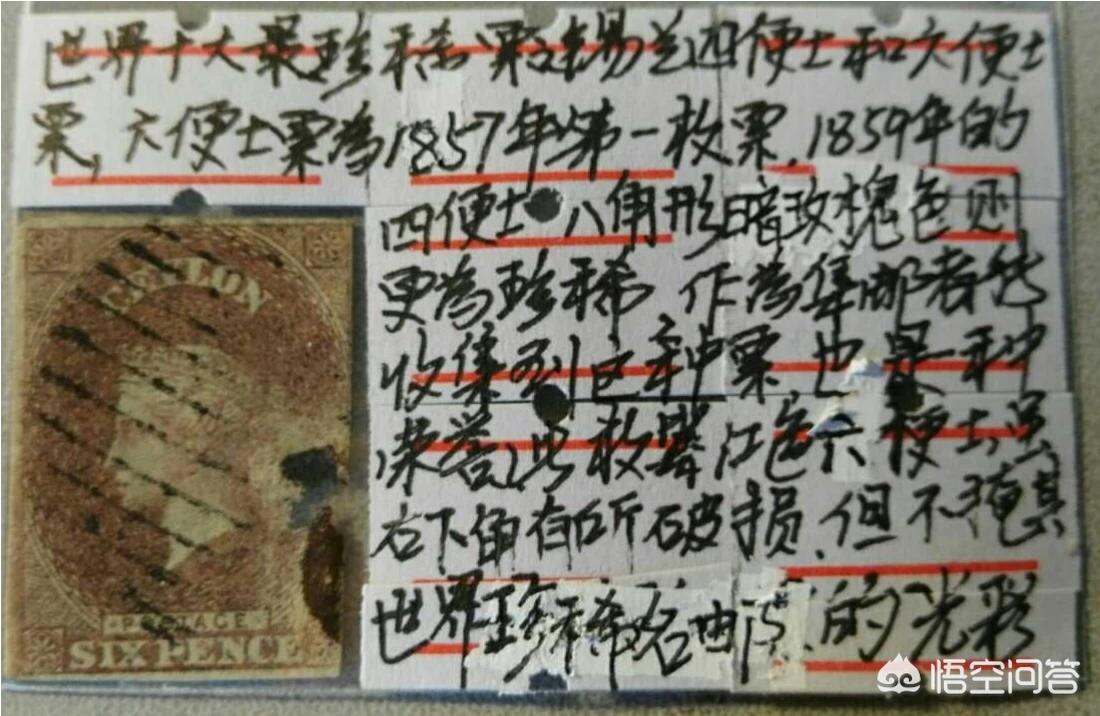 世界十大最珍稀票之锡兰四便士和六便士
票,六便士票為1857年第一枚票,1859年的
四便士八角形暗玫瑰色则
更為珍稀 作為集邮者能
收集到这种票也是一种
荣誉,此枚 红色六梗士,虽
右下角有所破损,但不掩其
世界珍稀名邮 的光彩
CEYLON
POSTAGE
SIX PENCE
悟空问答